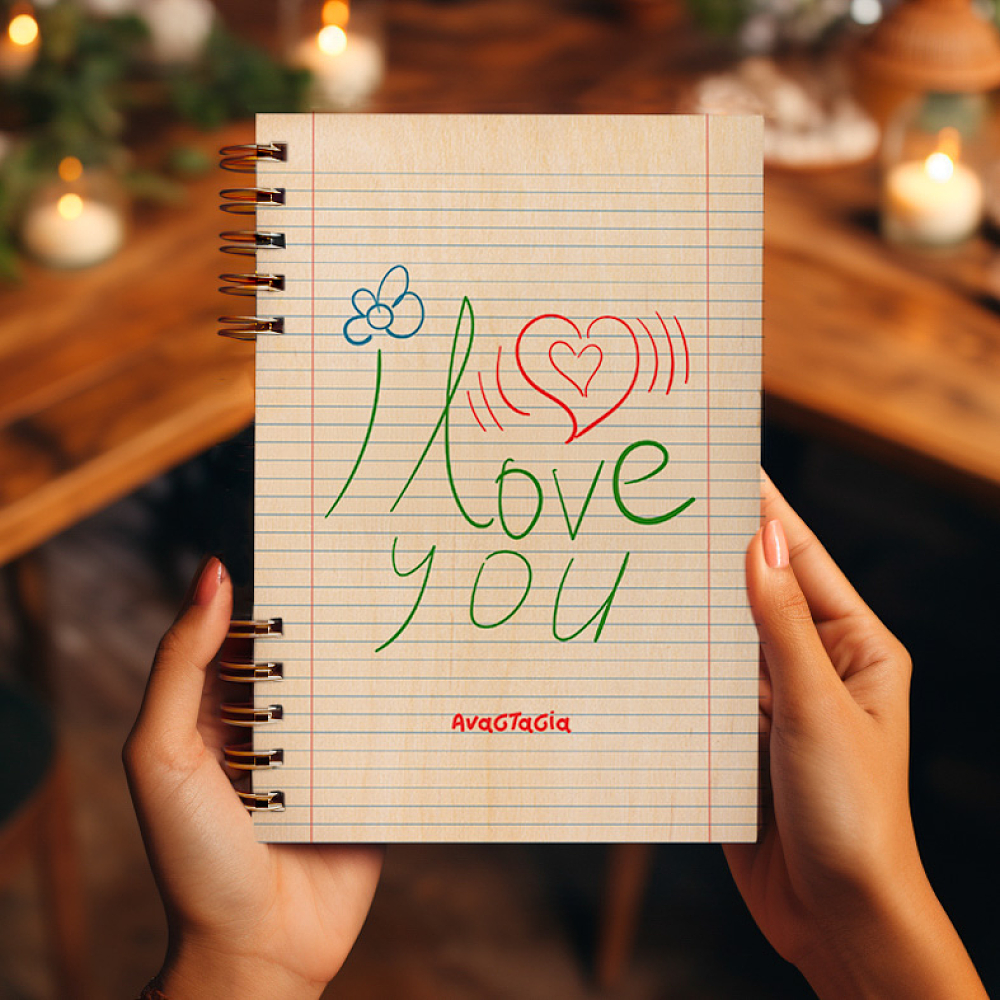 I love
you
AvaGTaGia